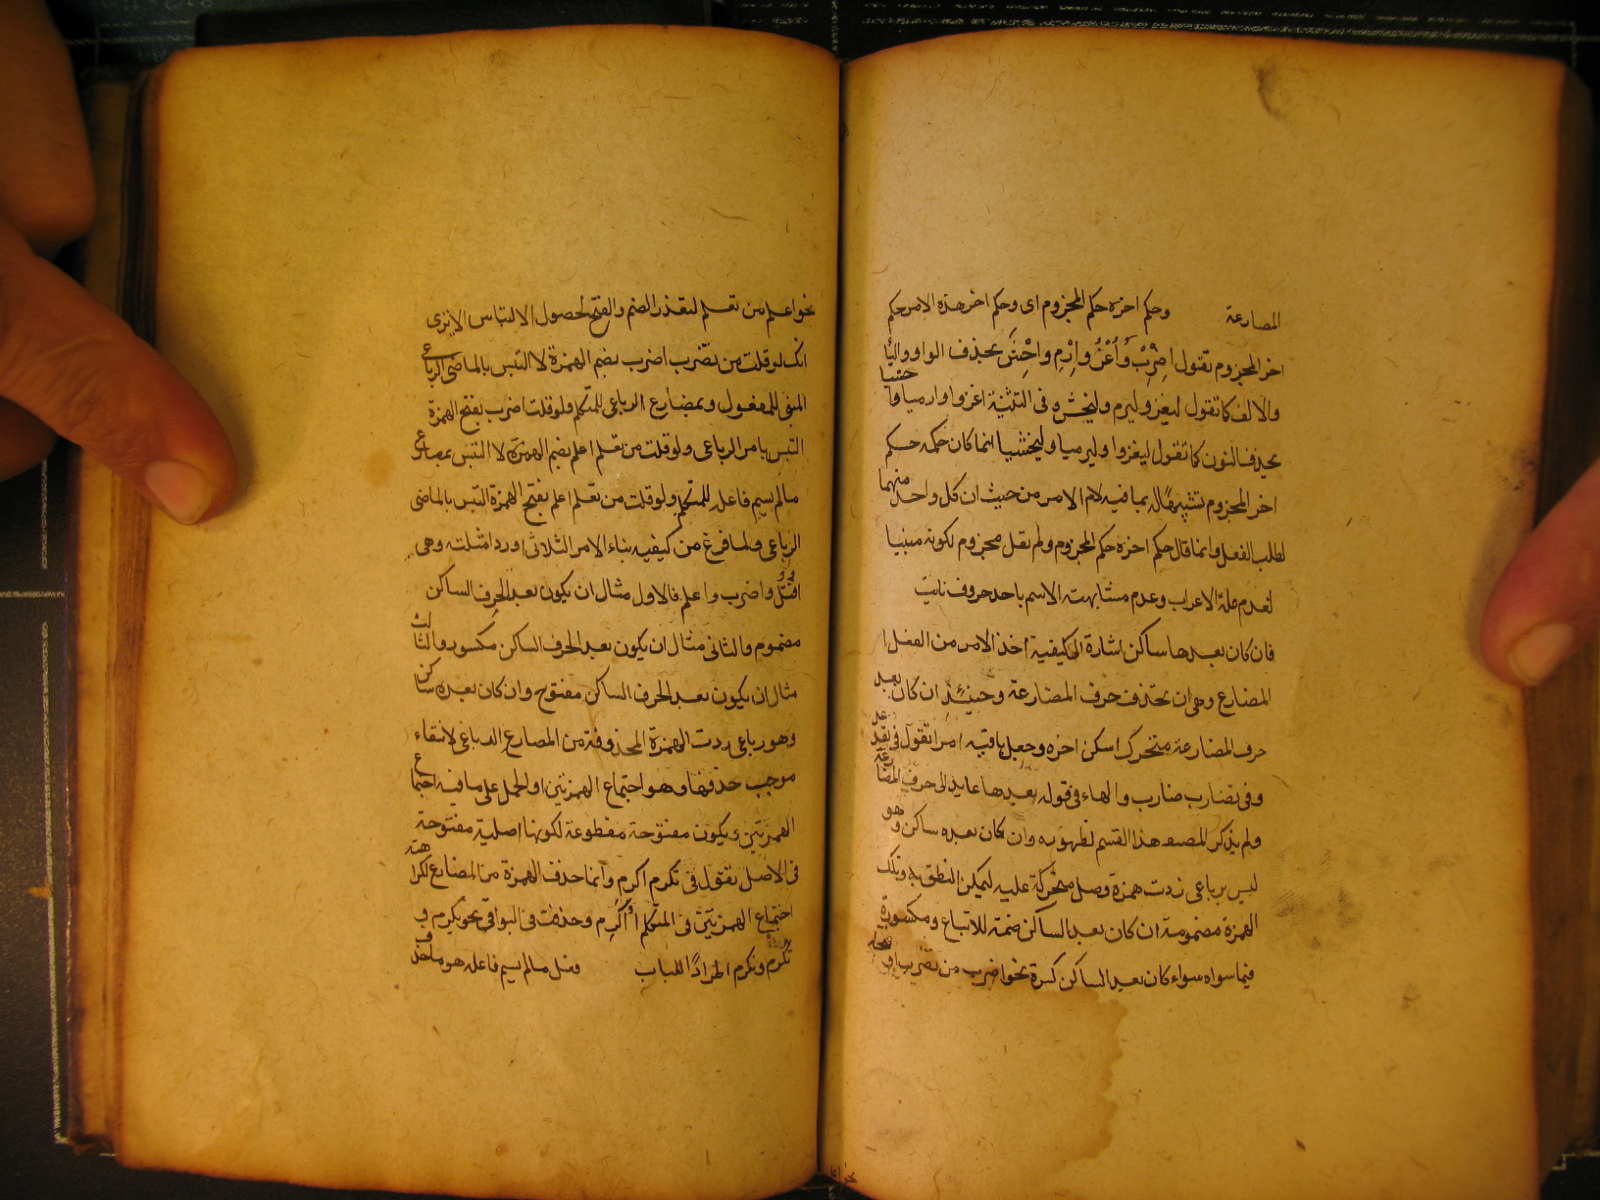 المضارعة وحكم اخره حكم المجزوم اى وحكم اخر هذه الامر حكم
اخر المجزوم تقول اِضْرِبْ وَاُغْزُ وارْمِ واخْشَ بحذف الواو والياء
والالف كما تقول ليغز وليرم وليخش وفى التثنية اغزوا وارميا واخشيا
بحذف النون كما تقول ليغزوا وليرميا وليخشيا انما كان حكمه حكم
اخر المجزوم تشبيها له بما فيه لام الامر من حيث ان كل واحد منهما
لطلب الفعل وانما قال حكم اخره حكم المجزوم ولم يقل مجزوم لكونه مبنيا
لعدم علة الاعراب وعدم مشابهته الاسم باحد حروف نايت
فان كان بعدها ساكن اشارة الى كيفية اخذ الامر من الفعل ا
المضارع وهى ان تحذف حرف المضارعة وحينئذ ان كان بعد
حرف المضارعة متحرك اسكن اخره وجعل باقيه امرا تقول فى تعد عد
وفى تضارب ضارب والهاء فى قوله بعدها عايد الى حرف المضارعة
ولم يذكر المصنف هذا القسم لظهوره وان كان بعده ساكن وهو
ليس برباعى زدت همزة وصل متحركة عليه ليمكن النطق به وتلك
الهمزة مضمومة ان كان بعد الساكن ضمة للاتباع ومكسورة
فيما سواه سواء كان بعد الساكن كسرة نحو اضرب من تضرب او فتحة
نحو اعلم
نحو اعلم من تعلم لتعذر الضم والفتح لحصول الالتباس الا ترى
انك لو قلت من تضرب اضرب بضم الهمزة لا التبس بالماضى الرباعى
المبنى للمفعول وبمضارع الرباعى للمتكلم ولو قلت اضرب بفتح الهمزة
التبس بامر الرباعى ولو قلت من تعلم اعلم بضم الهمزة لا التبس بمضارع
مالم يسم فاعله للمتكلم ولو قلت من تعلم اعلم بفتح الهمزة التبس بالماضى
الرباعى ولما فرغ من كيفيه بناء الامر الثلاثى اورد امثلته وهى
اقتل واضرب واعلم فالاول مثال ان يكون بعد الحرف الساكن
مضموم والثانى مثال ان يكون بعد الحرف الساكن مكسور والثالث
مثال ان يكون بعد الحرف الساكن مفتوح وان كان بعده ساكن
وهو رباعى رددت الهمزة المحذوفة من المضارع الرباعى لانتفاء
موجب حذفها وهو اجتماع الهمزتين او الحمل على ما فيه اجتماع
الهمزتين ويكون مفتوحة مقطوعة لكونها اصلية مفتوحة
فى الاصل تقول فى تكرم اكرم وانما حذف الهمزة من المضارع لكراهة
اجتماع الهمزتين فى المتكلم اأكرم وحذفت فى البواقى نحو يكرم و
تكرم ونكرم اطرادًا للباب وفعل مالم يسم فاعله هو ما حذف